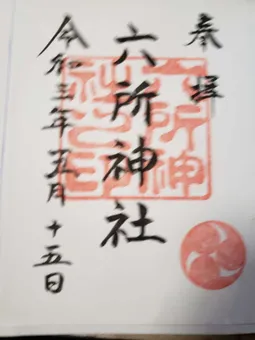 奉拝
六所神社
六所神社之印
令和三年五月十五日